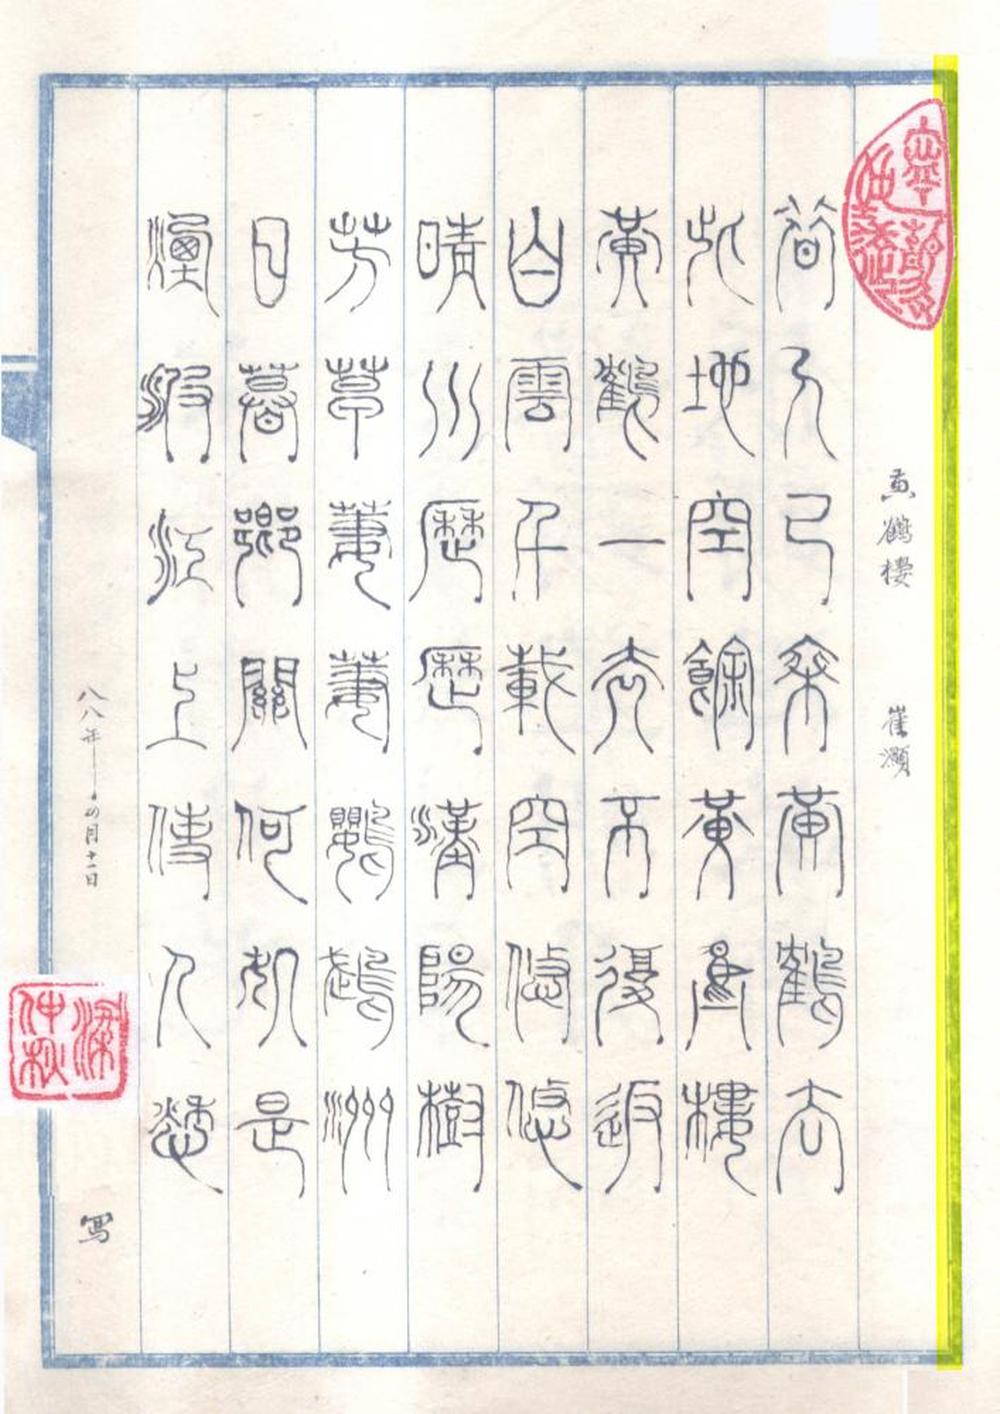 黃鶴樓 崔灝
昔人已乘黃鶴去
此地空餘黃鶴樓
黃鶴一去不復返
白雲千載空悠悠
晴川歷歷漢陽樹
芳草萋萋鸚鵡洲
日暮鄉關何處是
煙波江上使人愁
八八年四月十一日
梁仲秋
寫